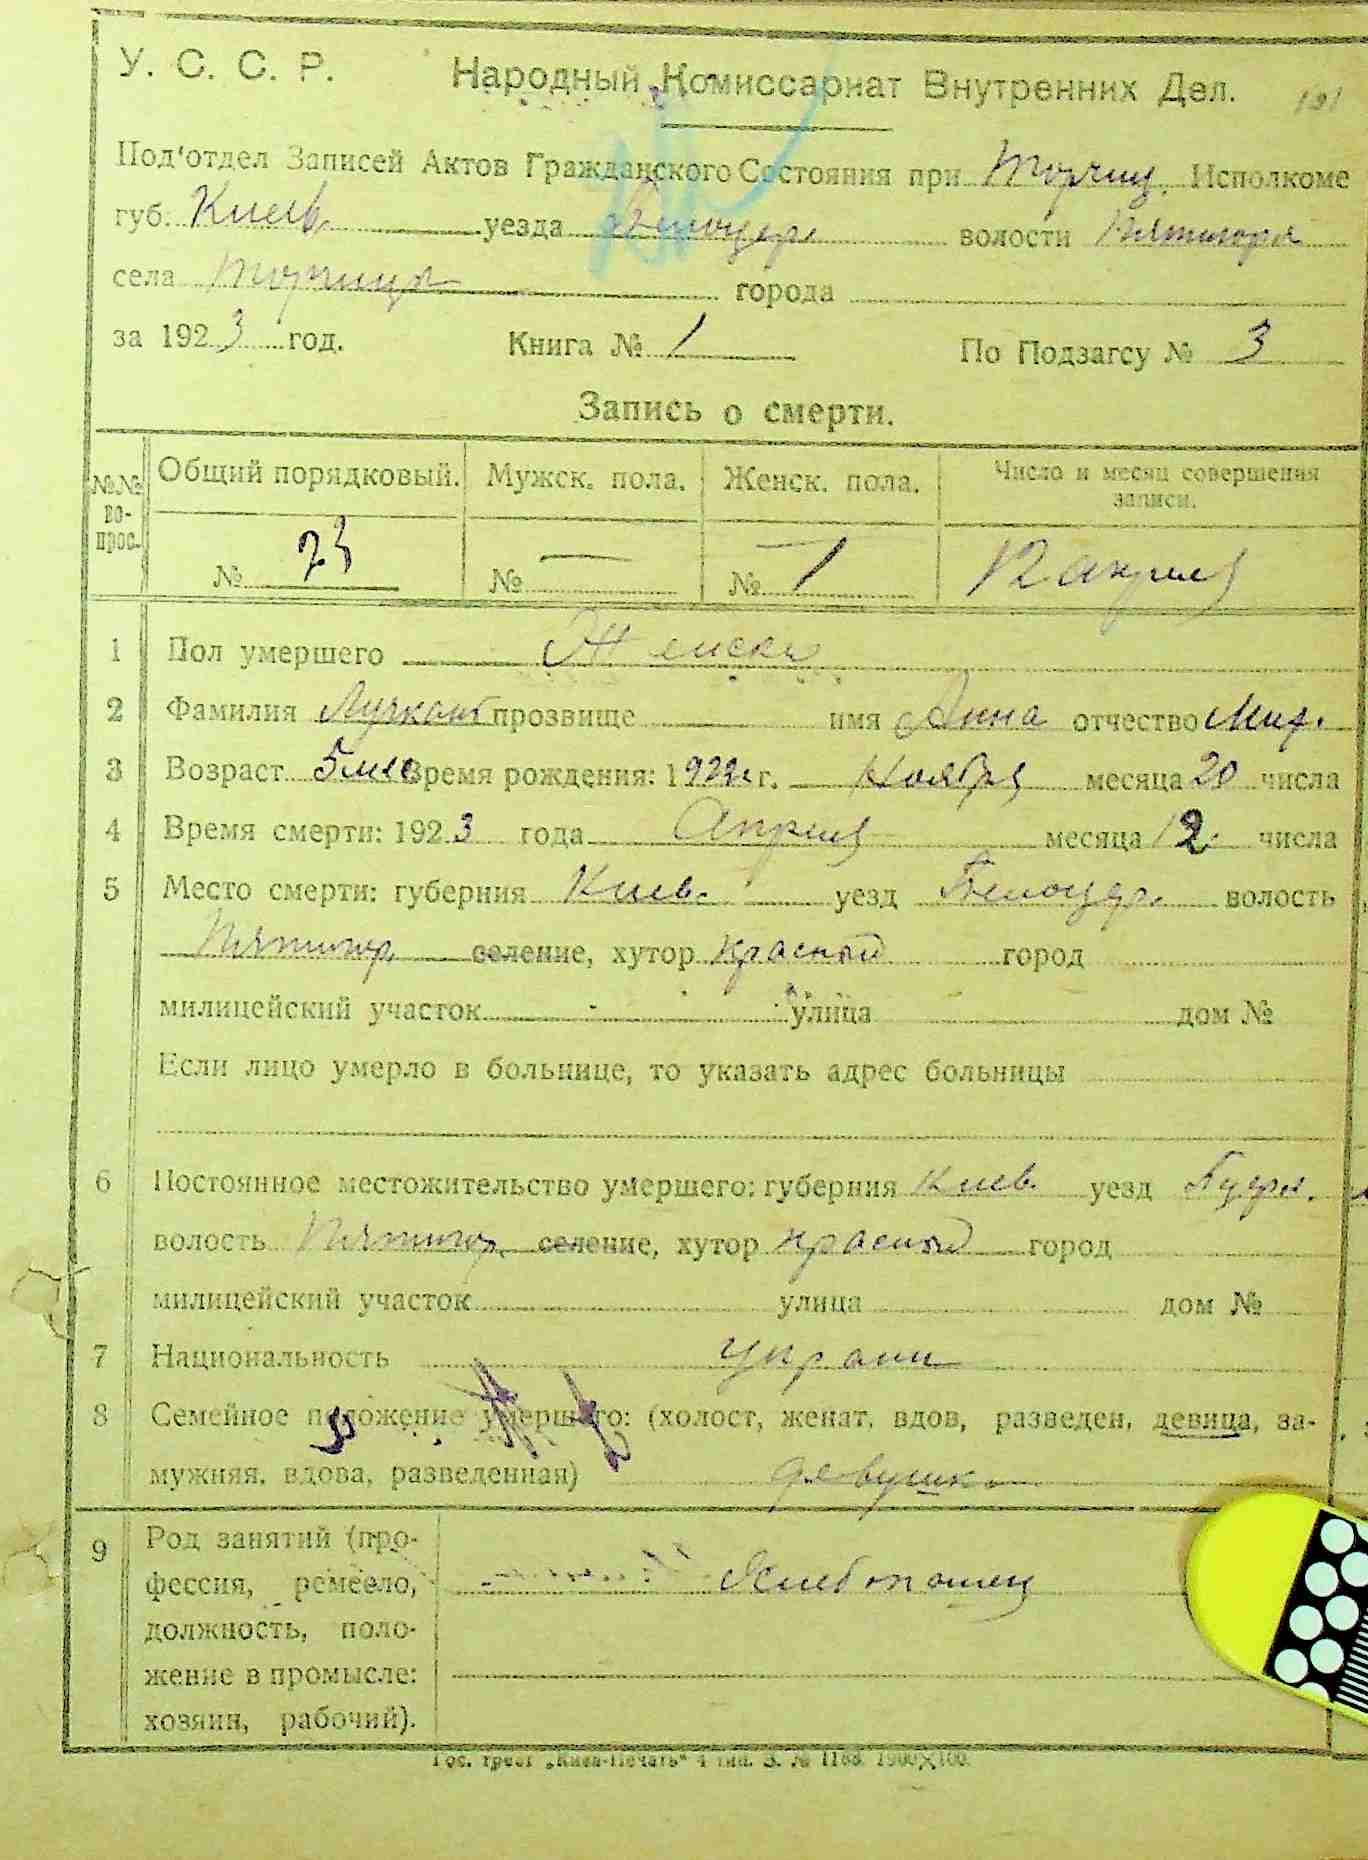 У. С. С. Р. Народный Комиссариат Внутренних Дел.
Под'отдел Записей Актов Гражданского Состояния при Торчиц. Исполкоме
губ. Киев. уезда Белоцер. волости Пятигоря
села Торчица города
за 1923 год. Книга № 1 По Подзагсу № 3
Запись о смерти.
№№ вопрос. Общий порядковый. Мужск. пола. Женск. пола. Число и месяц совершения записи.
№ 23 № — № 1 12 апреля
1 Пол умершего Женски
2 Фамилия прозвище имя Анна отчество Мит.
3 Возраст 5 мес Время рождения: 1922 г. Ноября месяца 20 числа
4 Время смерти: 1923 года Апреля месяца 12 числа
5 Место смерти: губерния Киев. уезд Белоцер. волость
Пятигор. селение, хутор Красный город
милицейский участок улица дом №
Если лицо умерло в больнице, то указать адрес больницы
6 Постоянное местожительство умершего: губерния Киев. уезд
волость Пятигор. селение, хутор Красный город
милицейский участок улица дом №
7 Национальность Украин
8 Семейное положение умершего: (холост, женат, вдов, разведен, девица, за-
мужняя, вдова, разведенная) девушка
9 Род занятий (про-
фессия, ремесло, Хлебопашец
должность, поло-
жение в промысле:
хозяин, рабочий).
Гос. трест „Киев-Печать" 4 тип. З. № 1168. 1900×100.